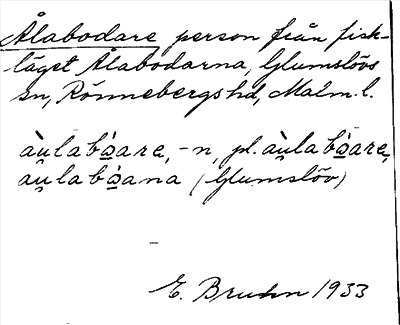 Ålabodare person från fisk-
läget Ålabodarna, Glumslövs
sn, Rönnebergs hd, Malm. l.
àu̯labɷ́are, -n, pl. àu̯labɷ́are,
àu̯labɷ́ana (Glumslöv)
E. Bruhn 1933